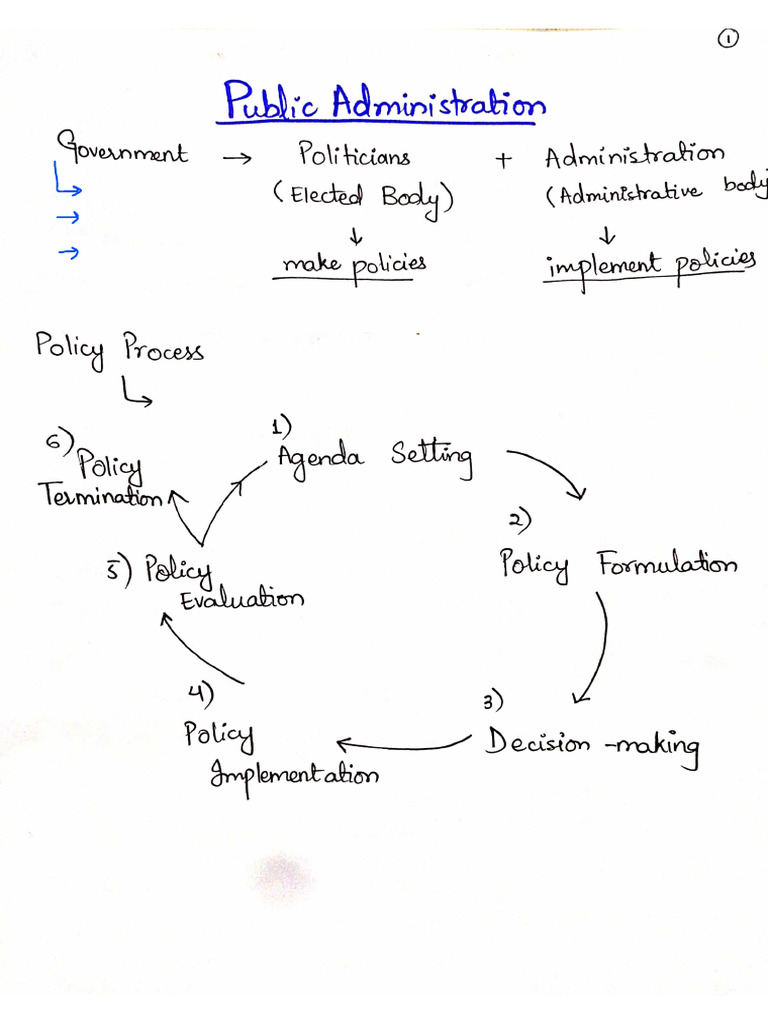 ①
Public Administration
Government → Politicians + Administration
(Elected Body) (Administrative body
↓ ↓
make policies implement policies
Policy Process
1)
Agenda Setting
2)
Policy Formulation
3)
Decision-making
4)
Policy
Implementation
5) Policy
Evaluation
6)
Policy
Termination